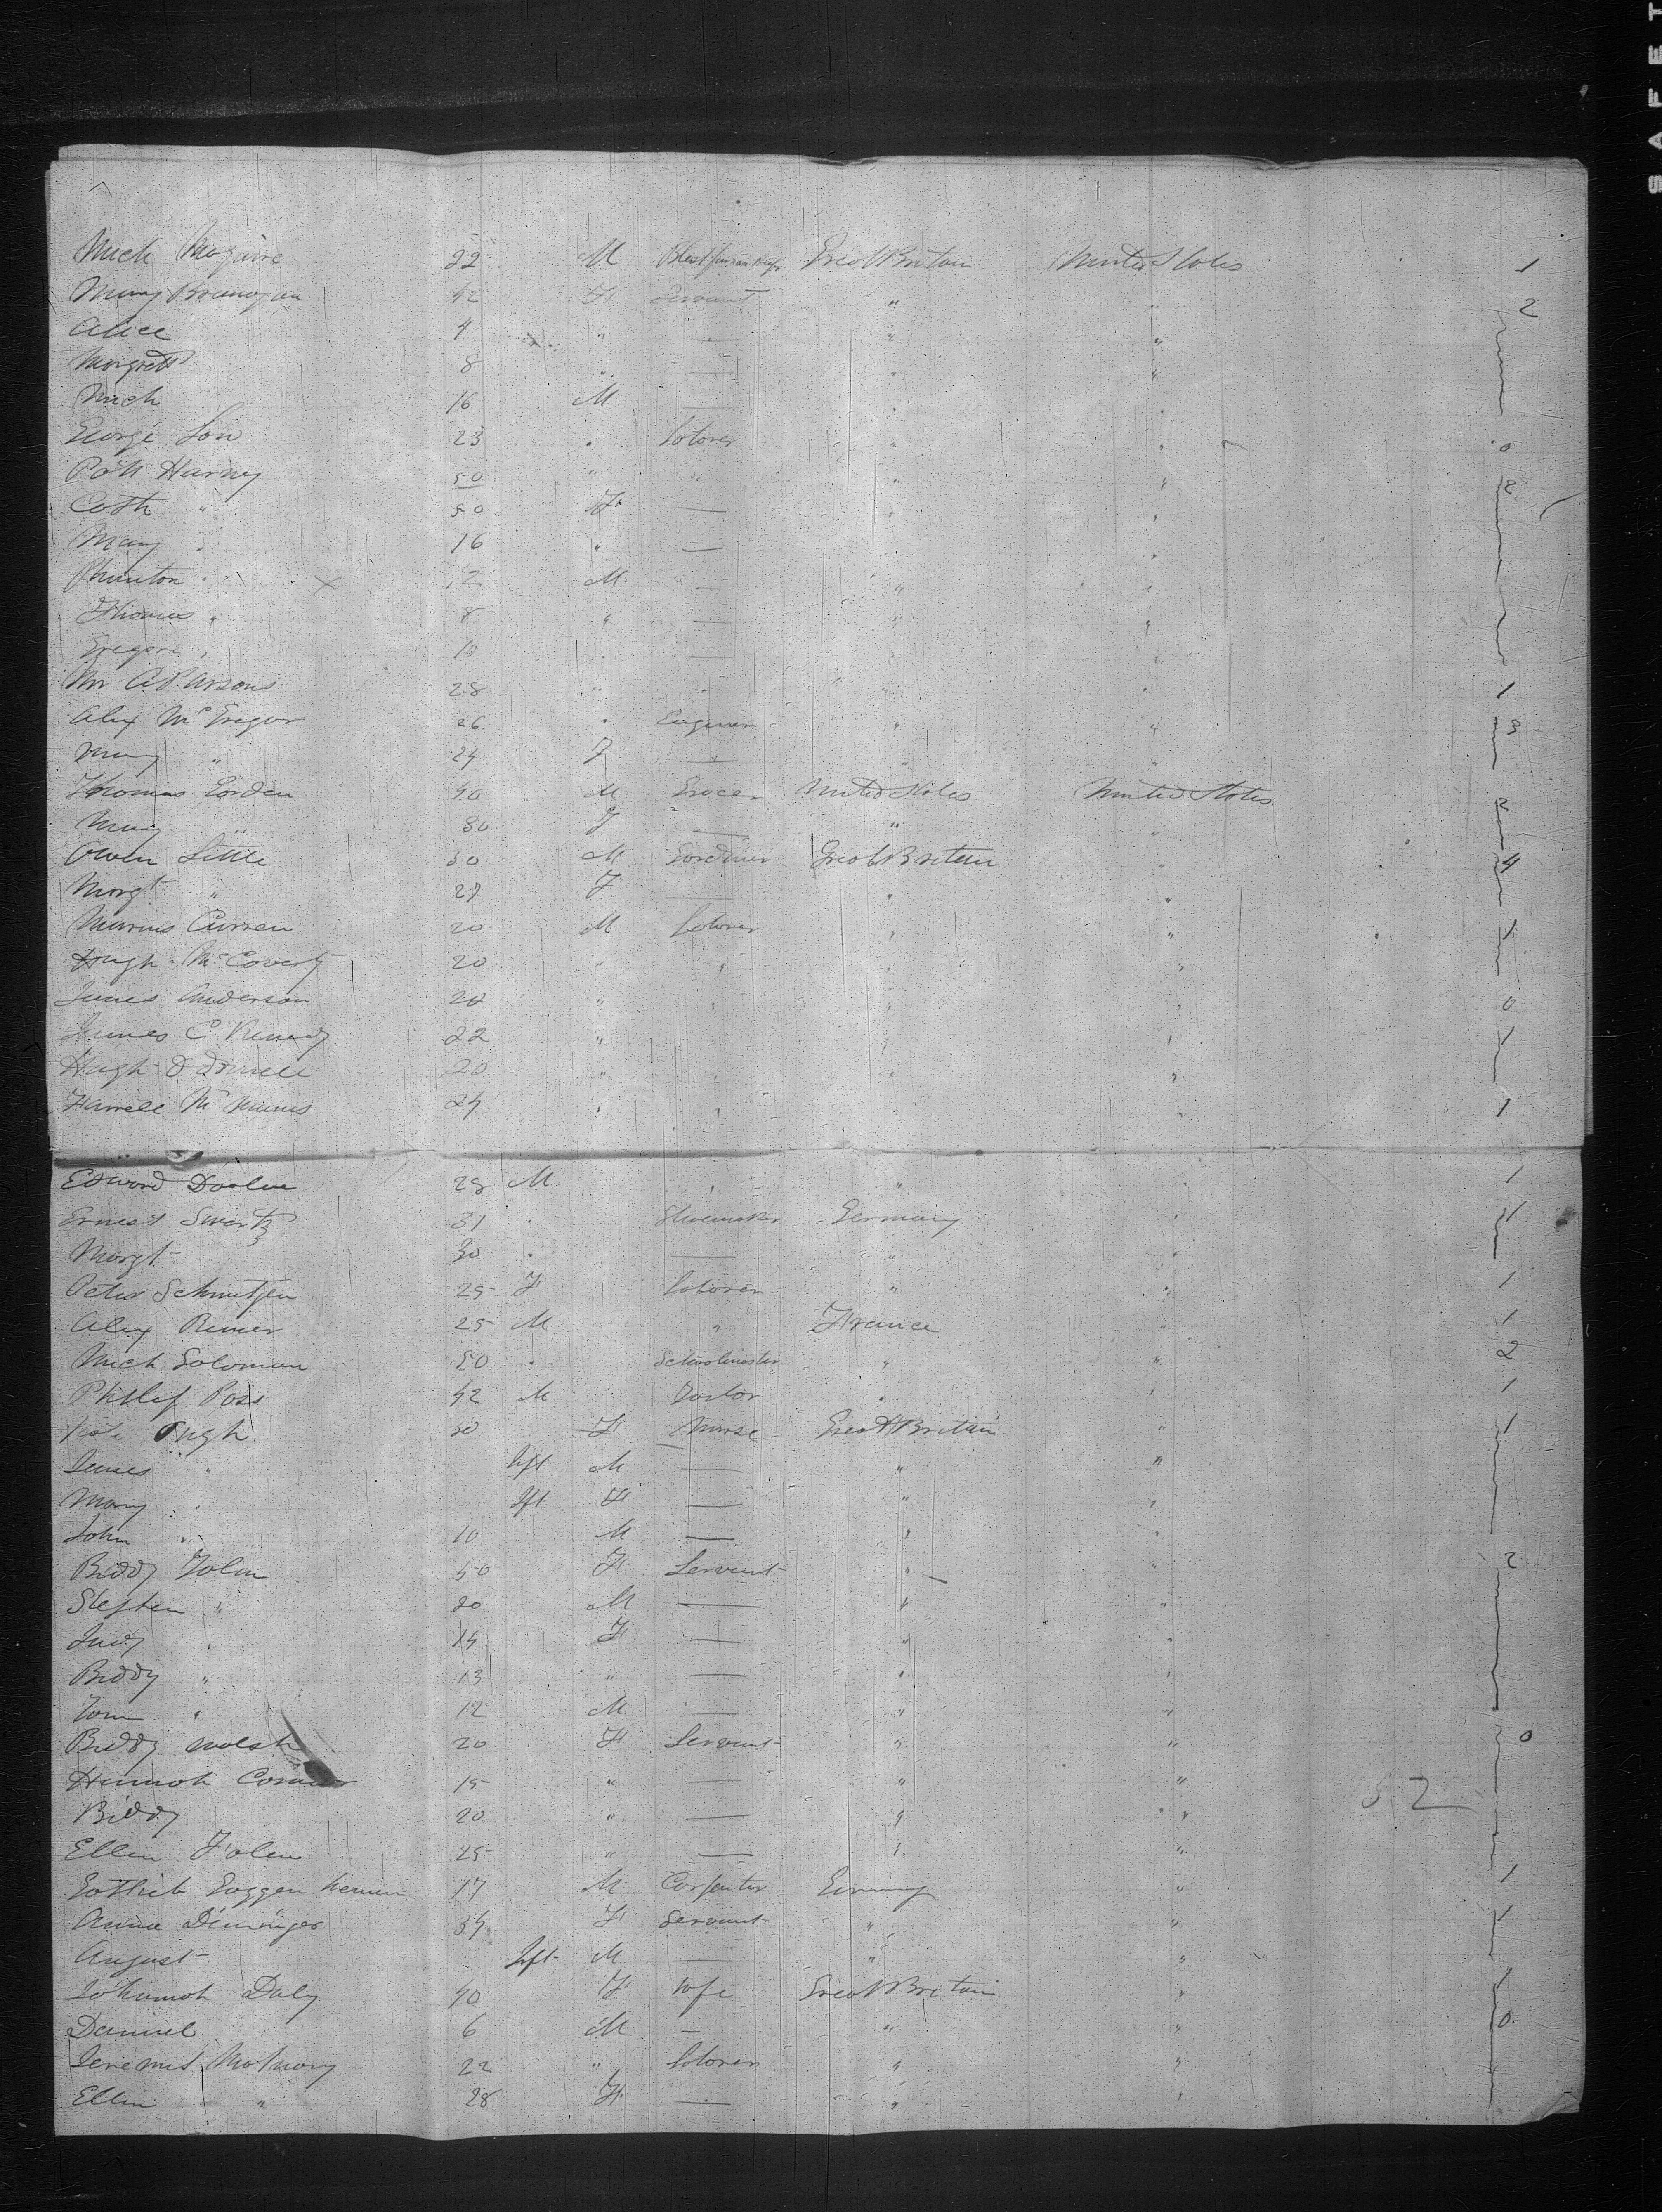 SAFET
Mich Maguire 22 M Great Britain United States 1
Mary Branagan 42 F Servant " " 2
Alice 4 " — " "
Margrett 8 " — " "
Mich 16 M — " "
George Low 23 " Laborer " " 0
Patt Harney 50 " " " " 2
Cath " 50 F — " "
Mary " 16 " — " "
12 M — " "
Thomas " 8 " — " "
10 " — " "
Mr A Parsons 28 " " " " 1
Alex McGregor 26 " Engineer " " 3
Mary " 24 F — " "
Thomas Gorden 40 M Grocer United States United States 2
Mary " 30 F — " "
Owen Little 30 M Gardiner Great Britain " 4
Margt " 27 F — " "
Curren 20 M Laborer " " 1
Hugh McCoverty 20 " " " "
James Anderson 20 " " " " 0
James C 22 " " " " 1
Hugh O Donnell 20 " " " "
Farrell 24 " " " " 1
Edward Doolin 28 M " " " 1
Ernest Swartz 31 " Shoemaker Germany " 1
Margt 30 " — " "
Peter 25 F Laborer " " 1
Alex 25 M " France " 1
Mich Soloman 50 " Schoolmaster " " 2
Philip Poss 42 M Doctor " " 1
Pugh 30 F Nurse Great Britain " 1
James " Inft M — " "
Mary " Inft F — " "
John " 10 M — " "
Biddy 50 F Servant " " 2
Stephen " 20 M — " "
Judy " 14 F — " "
Biddy " 13 " — " "
Tom " 12 M — " "
Biddy Welsh 20 F Servant " " 0
Hannah Connor 15 " — " " 52
Biddy 20 " — " "
Ellen Folen 25 " — " "
Gotlieb 17 M Carpenter Germany " 1
Anna 34 F Servant " " 1
August Inft M — " "
Johannah Daly 40 F Wife Great Britain " 1
Daniel 6 M — " " 0
Mahony 22 " Laborer " "
Ellen " 28 F — " "